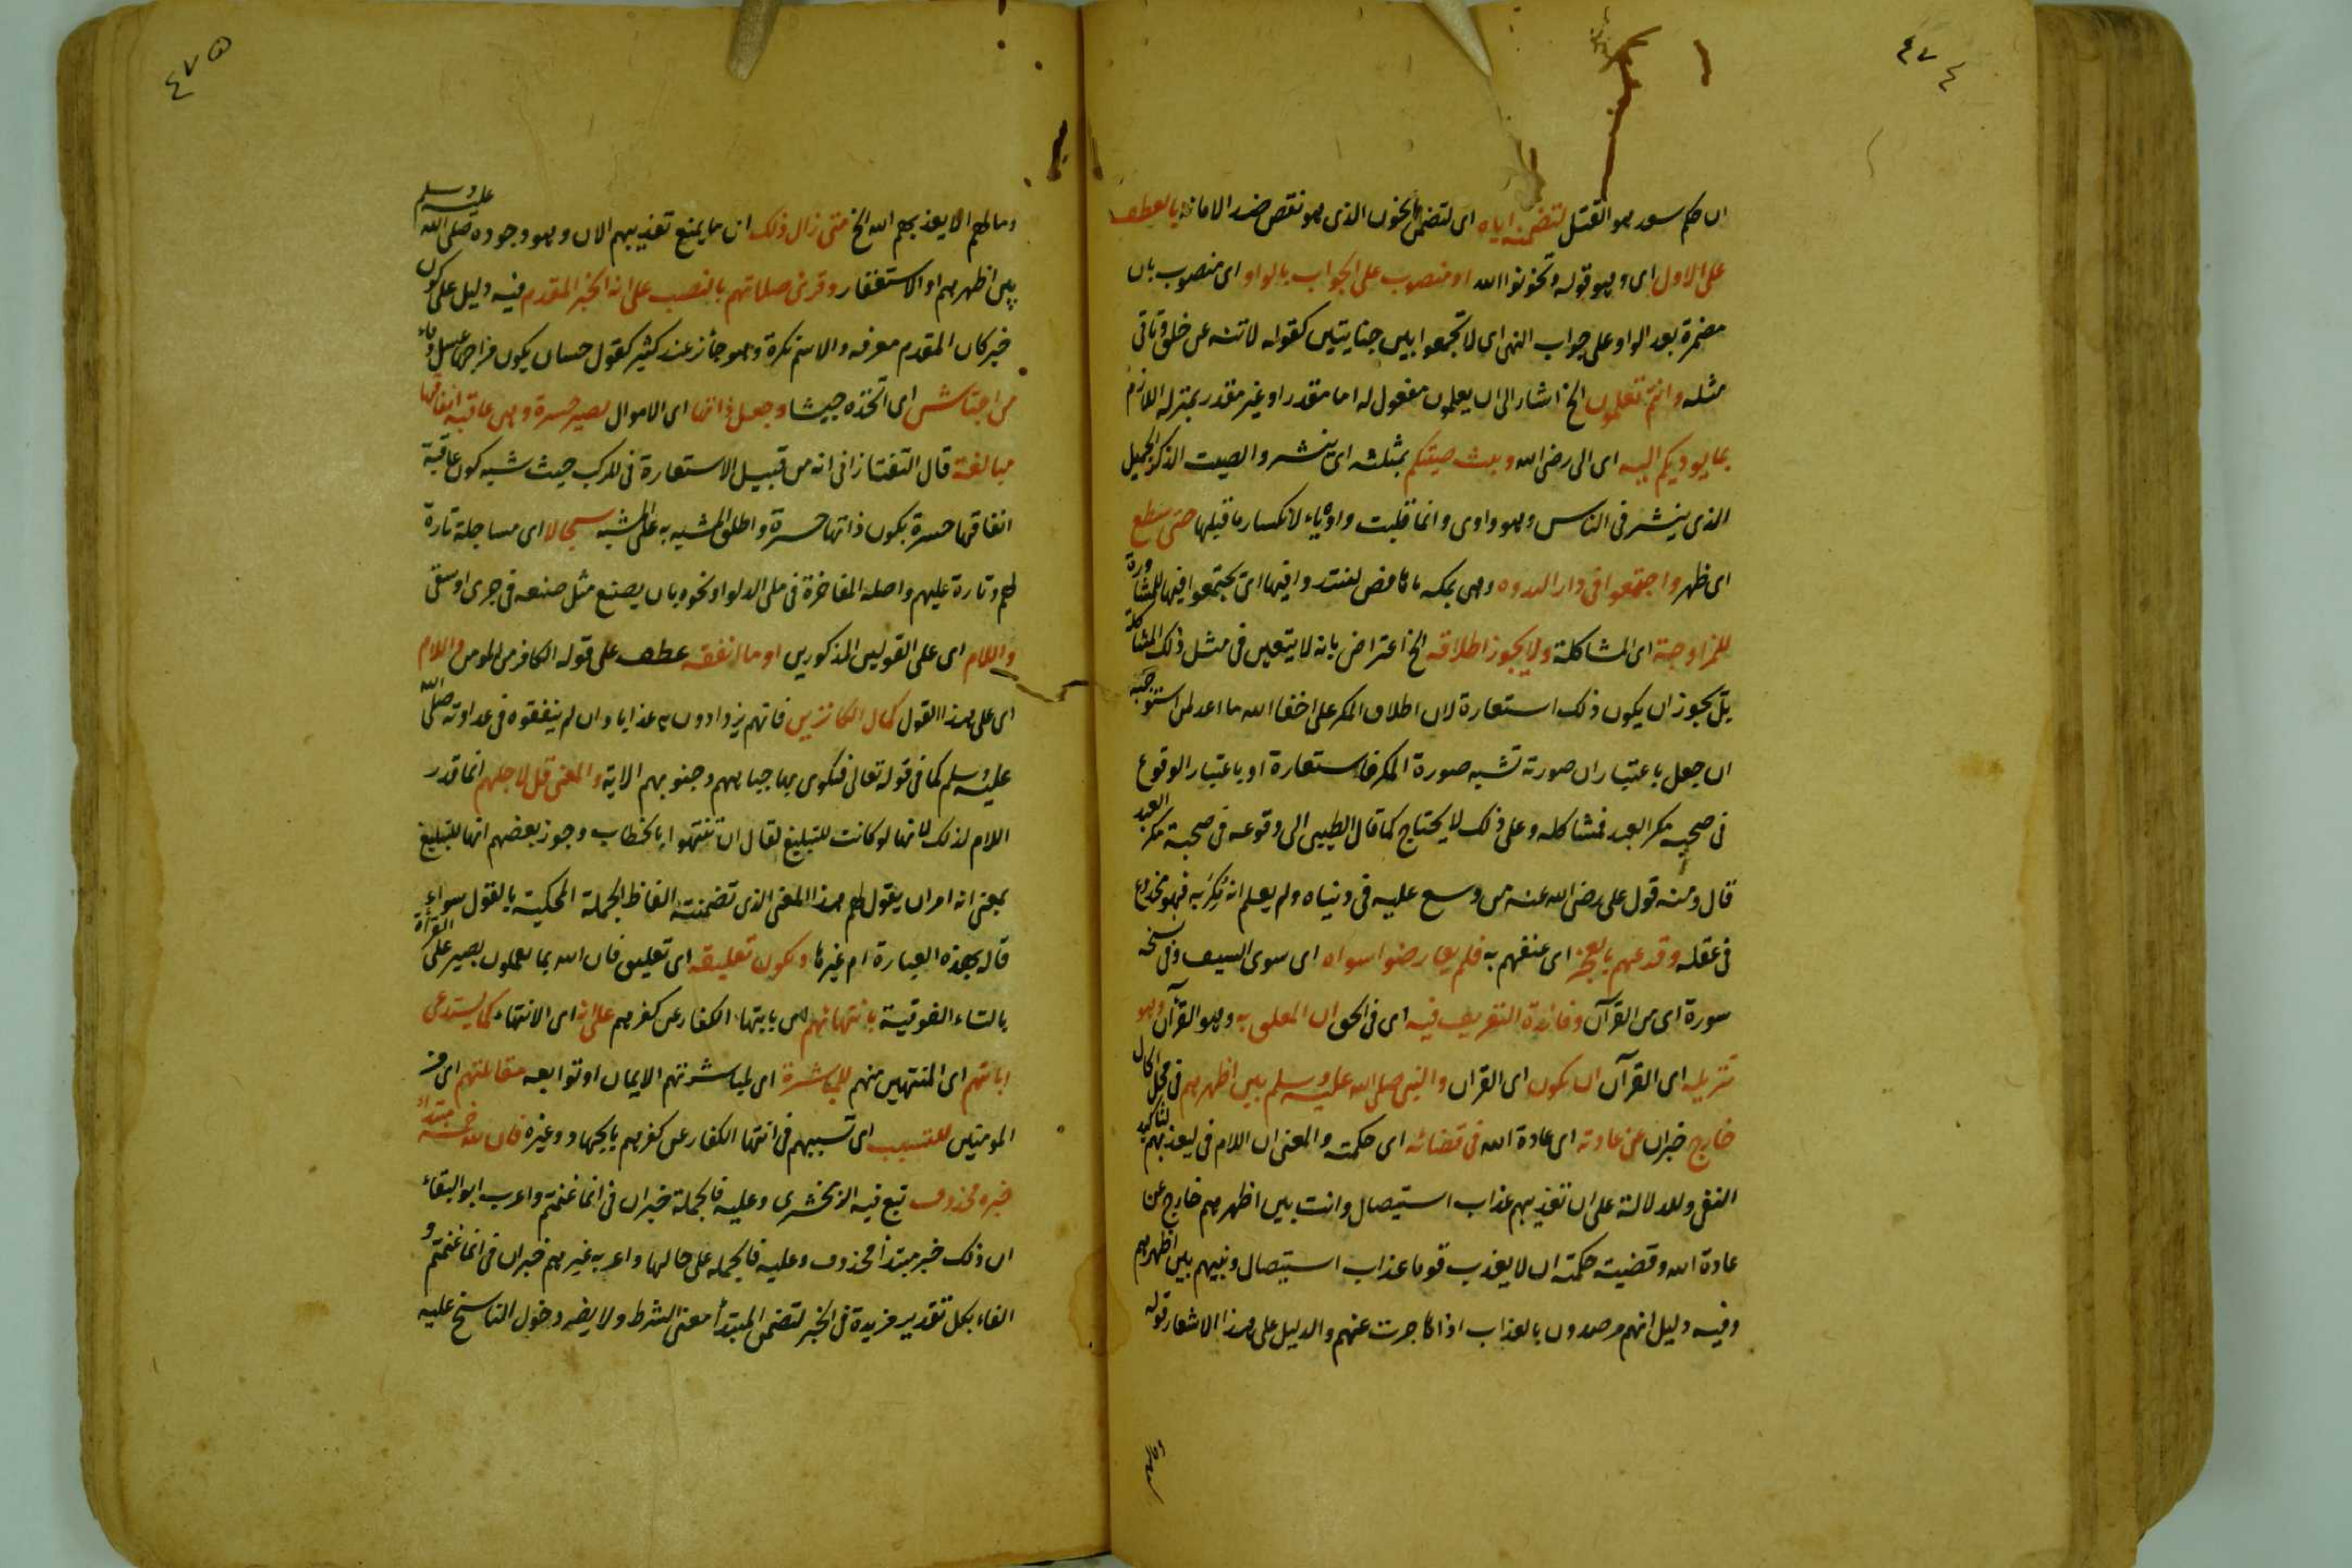 ٤٧٤
ان حكم سعد هو القتل لتضمنه اياه اى لتضمن الخون الذى هو نقص ضد الامانة بالعطف
على الاول اى وهو قوله وتخونوا الله او منصوب على الجواب بالواو اى منصوب بان
مضمرة بعد الواو على جواب النهى اى لا تجمعوا بين جنايتين كقوله لا تنه عن خلق وتاتى
مثله وانتم تعلمون الخ اشار الى ان يعلمون مفعول له اما مقدر او غير مقدر بمنزلة اللازم
بما يوديكم اليه اى الى رضى الله وبث صيتكم بمثلثه اى ينشر والصيت الذكر الجميل
الذى ينشر فى الناس وهو واوى وانما قلبت واوه ياء لانكسار ما قبلها حتى سطع
اى ظهر واجتمعوا فى دار الندوه وهى بمكه فيها اى يجتمعوا فيها للمشاورة
للمزاوجة اى المشاكلة ولا يجوز اطلاقه الخ اعتراض بانه لا يتعين فى مثل ذلك المشاكلة
بل يجوز ان يكون ذلك استعارة لان اطلاق المكر على اخفا الله ما اعد لمن استوجبه
ان جعل باعتبار ان صورته تشبه صورة المكر فاستعارة او باعتبار الوقوع
فى صحبه مكر العبد فمشاكله وعلى ذلك لا يحتاج كما قال الطيبى الى وقوعه فى صحبة مكر العبد
قال ومنه قول على رضى الله عنه من وسع عليه فى دنياه ولم يعلم انه مكر به فهو مخدوع
فى عقله وقد عهم بالعجز اى عنفهم به فلم يعارضوا سواه اى سوى السيف وفى نسخه
سورة اى من القرآن وفائدة التعريف فيه اى فى الحق ان المعلق به وهو القرآن وهو
تنزيله اى القرآن ان يكون اى القران والنبى صلى الله عليه وسلم بين اظهرهم فى محل الحال
خارج خبر ان عن عادته اى عادة الله فى قضائه اى حكمته والمعنى ان اللام فى ليعذبهم لتاكيد
النفى وللدلالة على ان تعذيبهم عذاب استيصال وانت بين اظهرهم خارج عن
عادة الله وقضيت حكمته ان لا يعذب قوما عذاب استيصال ونبيهم بين اظهرهم
وفيه دليل انهم مرصدون بالعذاب اذا هاجرت عنهم والدليل على هذا الاشعار قوله
وما لهم
٤٧٥
وما لهم الا يعذبهم الله الخ متى زال ذلك اى ما يمنع تعذيبهم الان وهو وجوده صلى الله عليه وسلم
بين اظهرهم او الاستغفار وقرئ صلاتهم بالنصب على انه الخبر المقدم فيه دليل على كون
خبر كان المقدم معرفه والاسم نكرة وهو جائز عند كثير كقول حسان يكون مزاجها عسل وماء
من اجتاش اى اتخذه جيشا وجعل ذاتها اى الاموال تصير حسرة وهى عاقبة انفاقها
مبالغة قال التفتازانى انه من قبيل الاستعارة فى المركب حيث شبه كون عاقبة
انفاقها حسرة بكون ذاتها حسرة واطلق المشبه به على المشبه سجالا اى مساجلة تارة
لهم وتارة عليهم واصله المفاخرة فى ملى الدلو او نحوه بان يصنع مثل صنعه فى جرى او سقى
واللام اى على القولين المذكورين او ما انفقه عطف على قوله الكافر من المومن واللام
اى على هذا القول كمال الكانزين فانهم يزدادون به عذابا وان لم ينفقوه فى عداوته صلى الله
عليه وسلم كما فى قوله تعالى فتكوى بها جباههم وجنوبهم الاية والمعنى قل لاجلهم انما قدر
اللام لذلك لانها لو كانت للتبليغ لقال ان تنتهوا بالخطاب وجوز بعضهم انها للتبليغ
بمعنى انه امر ان يقول لهم هذا المعنى الذى تضمنته الفاظ الجملة المحكية بالقول سواء
قاله بهذه العبارة ام غيرها ويكون تعليقه اى تعليق فان الله بما يعملون بصير على القرأة
بالتاء الفوقية بانتهائهم اى بانتهاء الكفار عن كفرهم على انه اى الانتهاء كما يستدعى
اثابتهم اى المنتهين منهم للمباشرة اى لمباشرتهم الايمان او توابعه مقاتلتهم اى من
المومنين للتسبب اى تسببهم فى انتها الكفار عن كفرهم بالجهاد وغيره فان لله خمسه مبتدأ
خبره محذوف تبع فيه الزمخشرى وعليه فالجملة خبر ان فى انما غنمتم واعرب ابو البقاء
ان ذلك خبر مبتدأ محذوف وعليه فالجملة على حالها واعربه غيرهم خبر ان فى انما غنمتم و
الفاء بكل تقدير مزيدة فى الخبر لتضمن المبتدأ معنى الشرط ولا يضر دخول الناسخ عليه